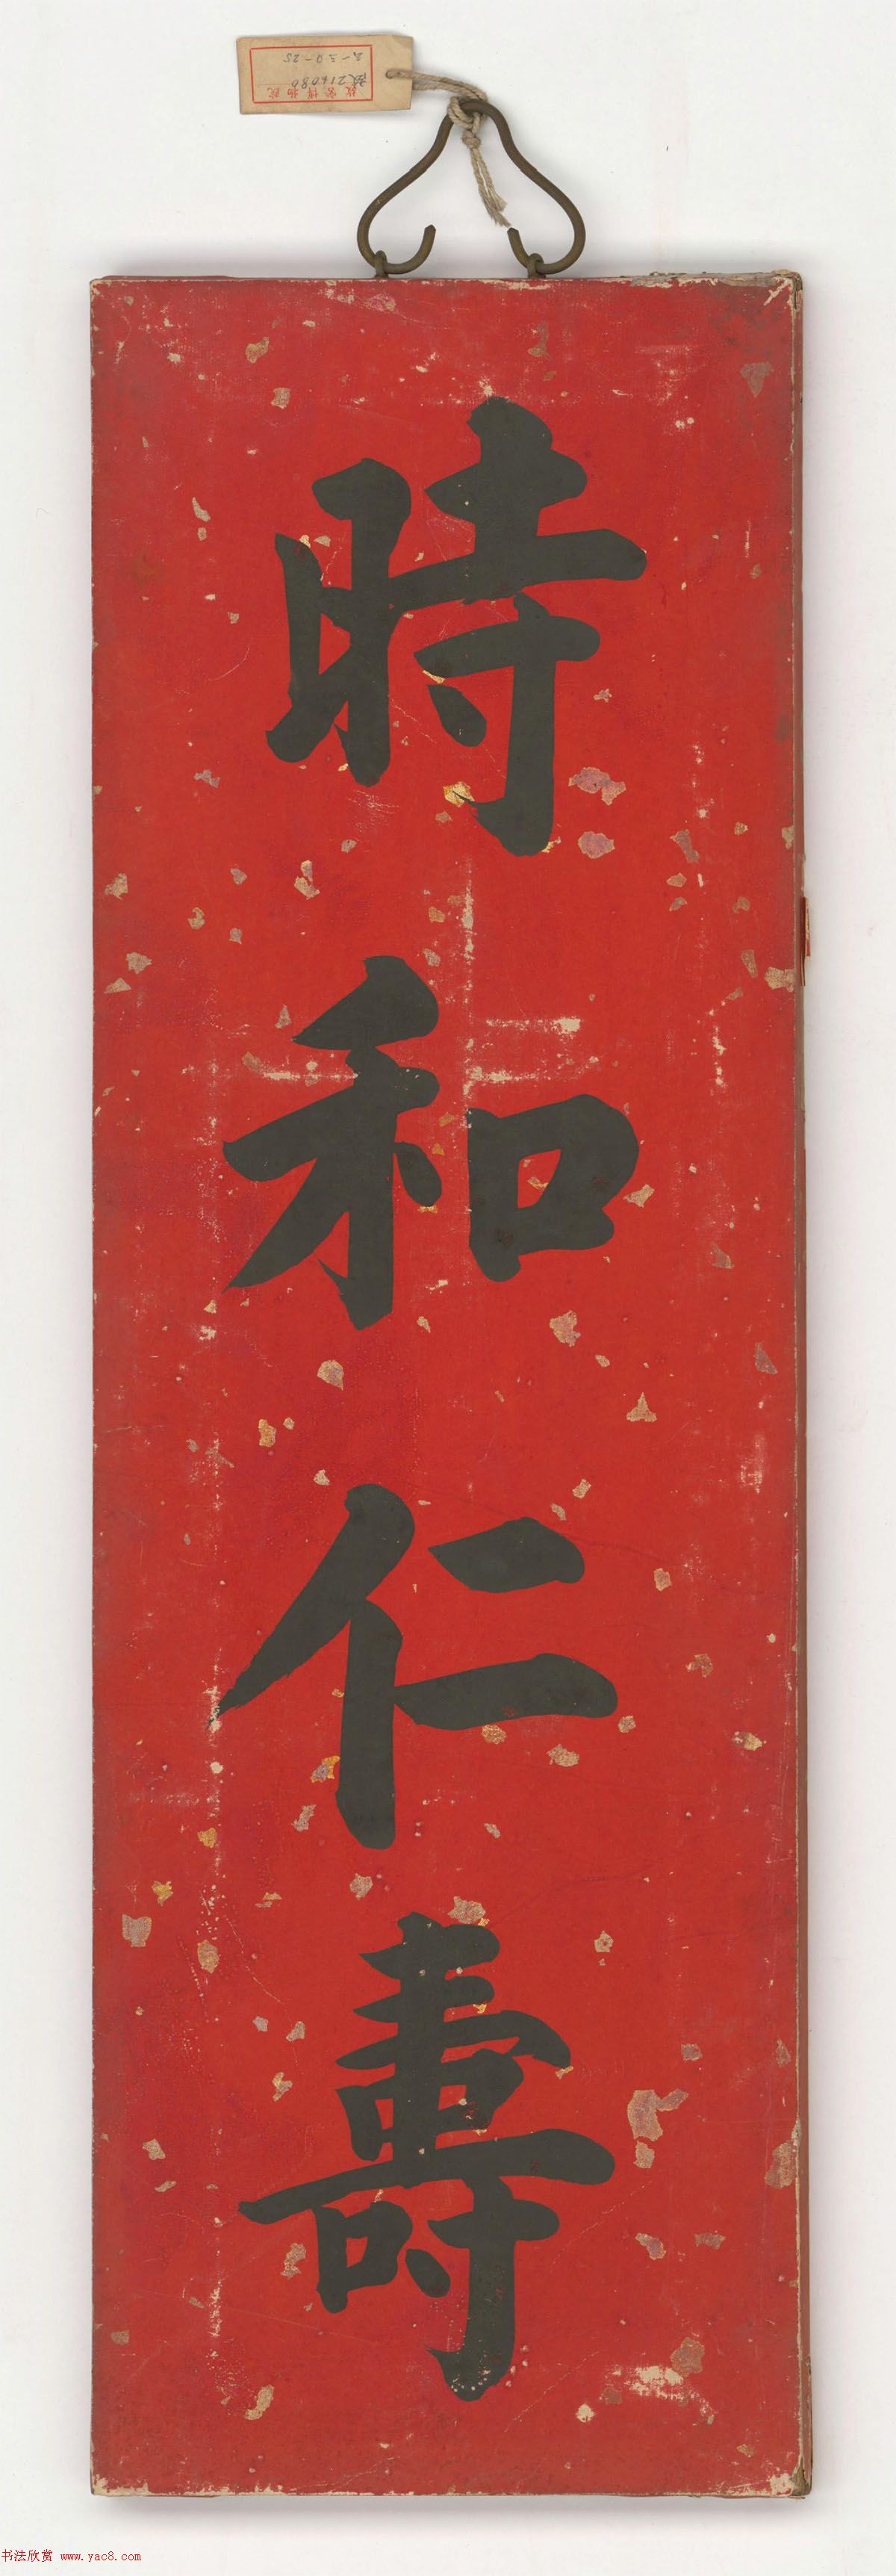 故宮博物院
故216080
時和仁壽
书法欣赏 www.yac8.com